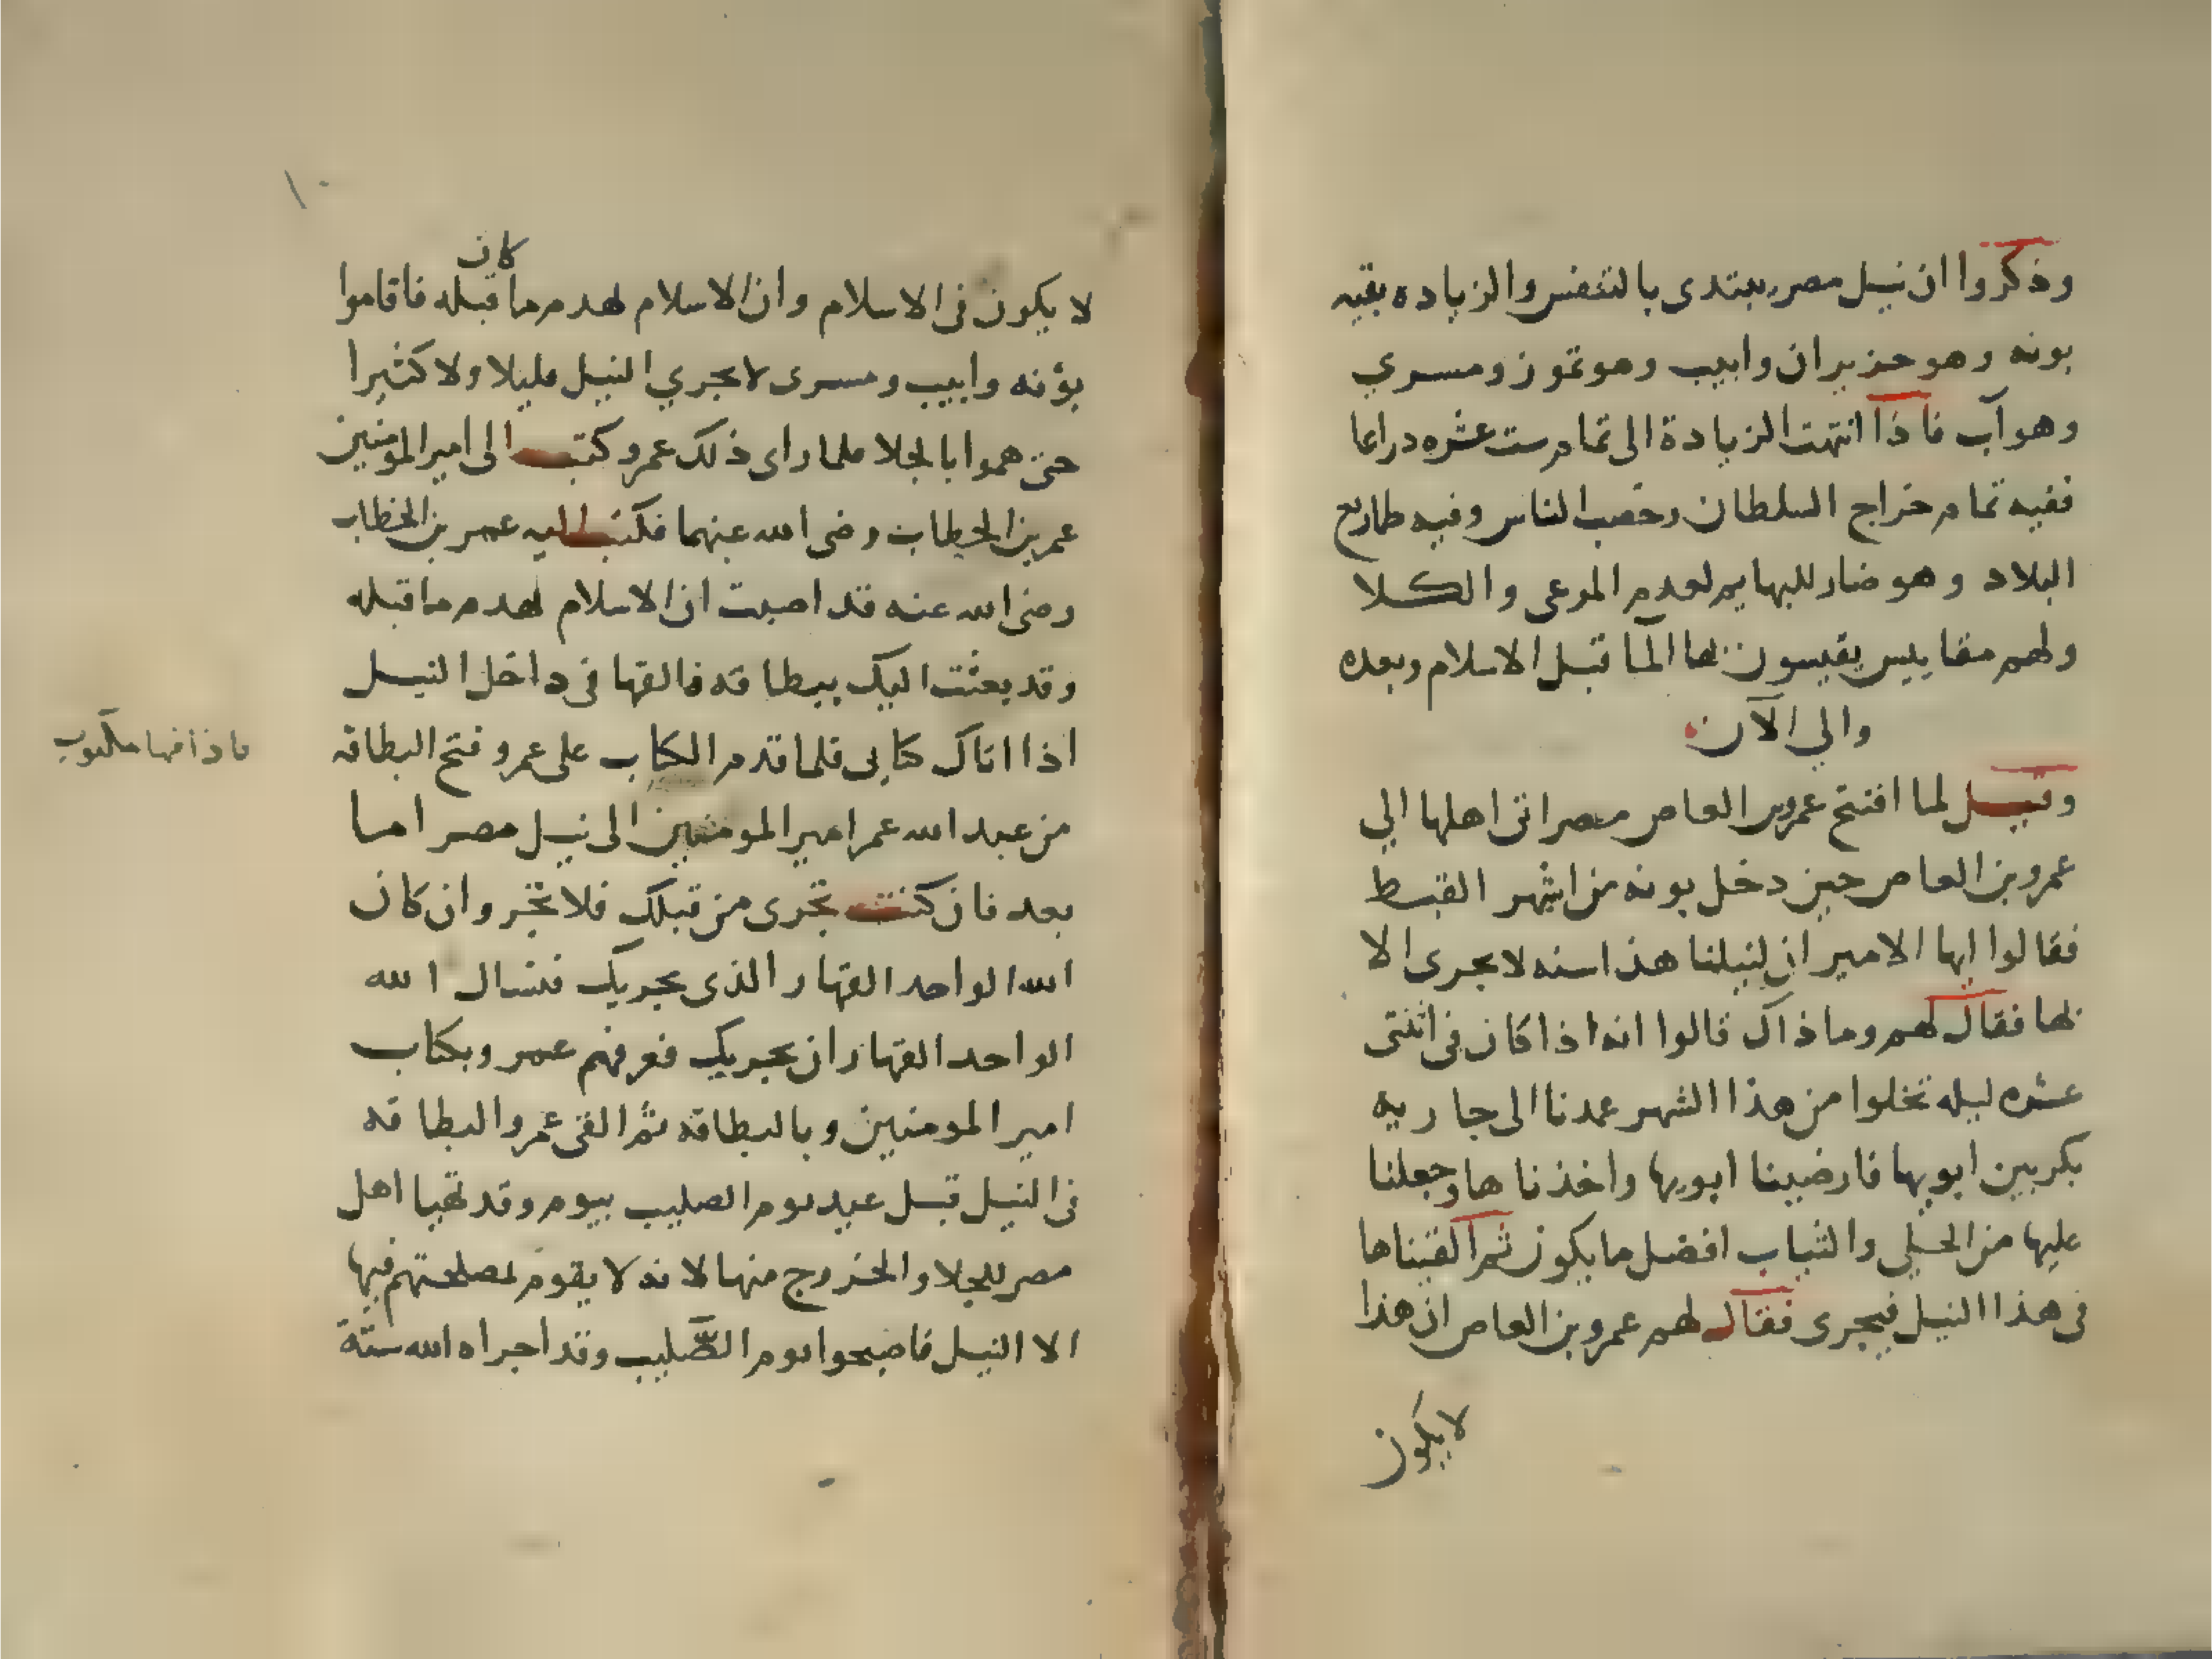 وذكروا ان نيل مصر يبتدى بالتنفس والزياده بقيه
بونه وهو حزيران وابيب وهو تموز ومسري
وهو آب فاذا انتهت الزيادة الى تمام ست عشره دراعا
ففيه تمام خراج السلطان وخصب الناس وفيه ظما ربع
البلاد وهو ضار للبهايم لعدم المرعى والكلا
ولهم مقاييس يقيسون بها الما قبل الاسلام وبعده
والي الآن
وقيل لما افتتح عمرو بن العاص مصر اتى اهلها الي
عمرو بن العاص حين دخل بونه من اشهر القبط
فقالوا ايها الامير ان لنيلنا هذا سنه لا يجرى الا
بها فقال لهم وما ذاك قالوا انه اذا كان فى اثنتى
عشره ليله تخلوا من هذا الشهر عمدنا الى جاريه
بكر بين ابويها فارضينا ابويها واخذناها وجعلنا
عليها من الحلي والثياب افضل ما يكون ثم القيناها
فى هذا النيل فيجرى فقال لهم عمرو بن العاص ان هذا
لا يكون
١٠
لا يكون فى الاسلام وان الاسلام يهدم ما كان قبله فاقاموا
بؤنه وابيب ومسرى لا يجري النيل قليلا ولا كثيرا
حتى هموا بالجلا فلما راى ذلك عمرو كتب الى امير المومنين
عمر بن الخطاب رضى الله عنهما فكتب اليه عمر بن الخطاب
رضى الله عنه قد اصبت ان الاسلام يهدم ما قبله
وقد بعثت اليك ببطاقه فالقها فى داخل النيل
اذا اتاك كتابى فلما قدم الكتاب على عمرو فتح البطاقه
فاذا فيها مكتوب
من عبد الله عمر امير المومنين الى نيل مصر اما
بعد فان كنت تجرى من قبلك فلا تجر وان كان
الله الواحد القهار الذى يجريك فنسال الله
الواحد القهار ان يجريك فعرفهم عمرو بكتاب
امير المومنين وبالبطاقه ثم القى عمرو البطاقه
فى النيل قبل عيد يوم الصليب بيوم وقد تهيا اهل
مصر للجلا والخروج منها لانه لا يقوم لمصلحتهم فيها
الا النيل فاصبحوا يوم الصّليب وقد اجراه الله ستة